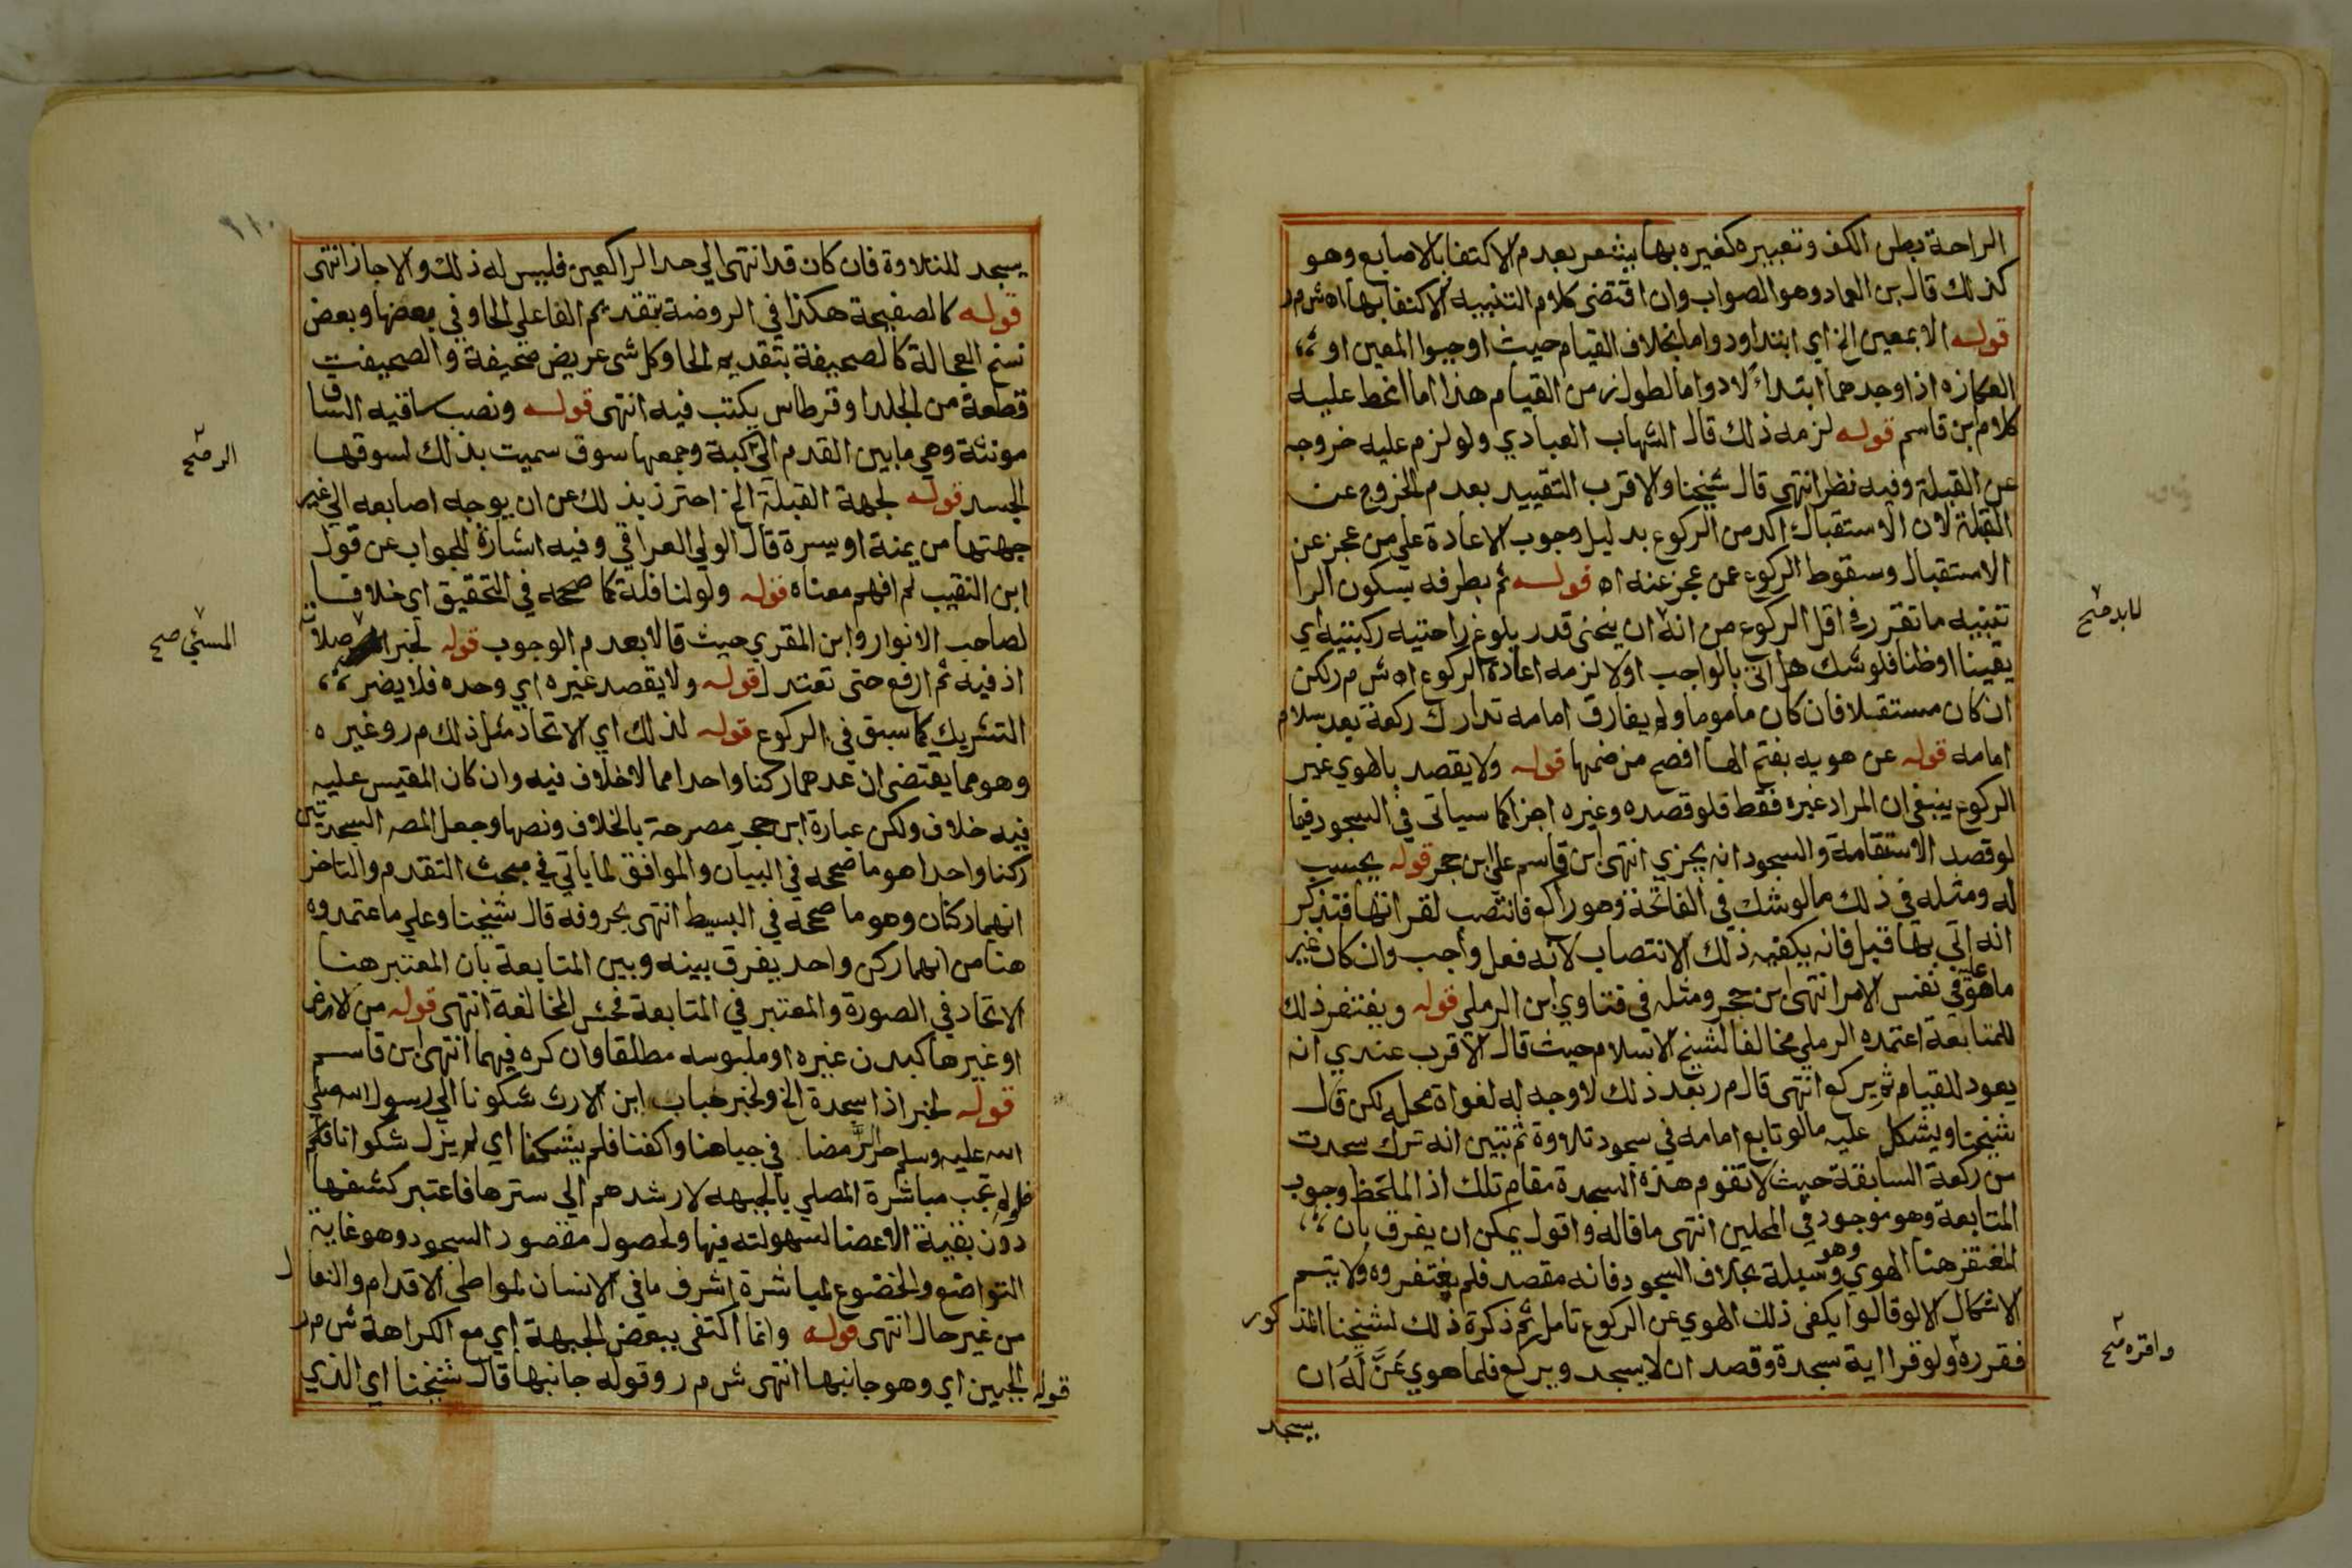 الراحة بطن الكف وتعبيره كغيره بها يشعر بعدم الاكتفا بالاصابع وهو
كذلك قال بن العماد وهو الصواب وان اقتضى كلام التنبيه الاكتفا بها اه ش م ر
قوله الا بمعين الخ اي ابتدا ودواما بخلاف القيام حيث اوجبوا المعين او
العكازه اذا وجدهما ابتداء لا دواما لطول زمن القيام هذا اما انحط عليه
كلام بن قاسم قوله لزمه ذلك قال الشهاب العبادي ولو لزم عليه خروجه
عن القبلة وفيه نظر انتهى قال شيخنا والاقرب التقييد بعدم الخروج عن
القبلة لان الاستقبال اكد من الركوع بدليل وجوب الاعادة علي من عجز عن
الاستقبال وسقوط الركوع عمن عجز عنه اه قوله ثم بطرفه بسكون الرا
تنبيه ما تقرر في اقل الركوع من انه ان ينحنى قدر بلوغ راحتيه ركبتيه اي
لابد صح
يقينا او ظنا فلو شك هل اتي بالواجب اولا لزمه اعادة الركوع اه ش م ر لكن
ان كان مستقبلا فان كان ماموما ولم يفارق امامه تدارك ركعة بعد سلام
امامه قوله عن هويه بفتح الها افصح من ضمها قوله ولا يقصد بالهوي غير
الركوع ينبغي ان المراد غيره فقط فلو قصده وغيره اجزا كما سياتى في السجود فيما
لو قصد الاستقامة والسجود انه يجزي انتهى ابن قاسم علي ابن حجر قوله يحسب
له ومثله في ذلك مالو شك في الفاتحة وهو راكع فانتصب لقرانتها فتذكر
انه اتي بها قبل فانه يكفيه ذلك الانتصاب لانه فعل واجب وان كان غير
ما هو عليه في نفس الامر انتهى ابن حجر ومثله في فتاوي ابن الرملي قوله ويغتفر ذلك
للمتابعة اعتمده الرملي مخالفا لشيخ الاسلام حيث قال الاقرب عندي انه
يعود للقيام ثم يركع انتهى قال م ر بعد ذلك لا وجه له لفواة محله لكن قال
شيخنا ويشكل عليه مالو تابع امامه في سجود تلاوة ثم تبين انه ترك سجدت
من ركعة السابقة حيث لا تقوم هذه السجدة مقام تلك اذ الملحظ وجوب
المتابعة وهو موجود في المحلين انتهى ما قاله واقول يمكن ان يفرق بان
المغتفر هنا الهوي وهو وسيلة بخلاف السجود فانه مقصد فلم يغتفروه ولا يتم
الاشكال الا لو قالوا يكفى ذلك الهوي عن الركوع تامل ثم ذكرة ذلك لشيخنا المذكور
فقرره ولو قرا اية سجدة وقصد ان لا يسجد ويركع فلما هوي عَنَّ لَهُ ان
واقره صح
يسجد
١١٠
يسجد للتلاوة فان كان قد انتهى الي حد الراكعين فليس له ذلك والا جاز انتهى
قوله كالصفيحة هكذا في الروضة بتقديم الفا علي الحا وفي بعضها وبعض
نسخ العجالة كالصحيفة بتقديم الحا وكل شى عريض صحيفة والصحيفت
قطعة من الجلد او قرطاس يكتب فيه انتهى قوله ونصب ساقيه الساق
مونثة وهي ما بين القدم الي كبة وجمعها سوق سميت بذلك لسوقها
الر صح
الجسد قوله لجهة القبلة الخ احترز بذلك عن ان يوجه اصابعه الي غير
جهتها من يمنة او يسرة قال الولي العراقي وفيه اشارة للجواب عن قول
ابن النقيب لم افهم معناه قوله ولو لنافلة كما صححه في التحقيق اي خلافا
لصاحب الانوار وابن المقري حيث قالا بعدم الوجوب قوله لخبر صلاته
المسئي صح
اذ فيه ثم ارفع حتى تعتدل قوله ولا يقصد غيره اي وحده فلا يضر
التشريك كما سبق في الركوع قوله لذلك اي الاتحاد مثل ذلك م ر وغيره
وهو مما يقتضى ان عدهما ركنا واحدا مما لا خلاف فيه وان كان المقيس عليه
فيه خلاف ولكن عبارة ابن حجر مصرحة بالخلاف ونصها وجعل المصـ السجدتين
ركنا واحدا هو ما صححه في البيان والموافق لما ياتي في مبحث التقدم والتاخر
انهما ركنان وهو ما صححه في البسيط انتهى بحروفه قال شيخنا وعلي ما عتمدوه
هنا من انهما ركن واحد يفرق بينه وبين المتابعة بان المعتبر هنا
الاتحاد في الصورة والمعتبر في المتابعة فحش المخالفة انتهى قوله من الارض
او غيرها كبدن غيره او ملبوسه مطلقا وان كره فيهما انتهى ابن قاسم
قوله لخبر اذا سجدة الخ ولخبر خباب ابن الارث شكونا الي رسول الله صلي
الله عليه وسلم حر الرمضا في جباهنا واكفنا فلم يشكنا اي لم يزل شكوانا فلم
فلولم تجب مباشرة المصلي بالجبهه لارشدهم الي سترها فاعتبر كشفها
دون بقية الاعضا لسهولته فيها ولحصول مقصود السجود وهو غاية
التواضع والخضوع لمباشرة اشرف ما في الانسان لمواطى الاقدام والنعال
من غير حال انتهى قوله وانما اكتفى ببعض الجبهة اي مع الكراهة ش م ر
قوله الجبين اي وهو جانبها انتهى ش م ر وقوله جانبها قال شيخنا اي الذي